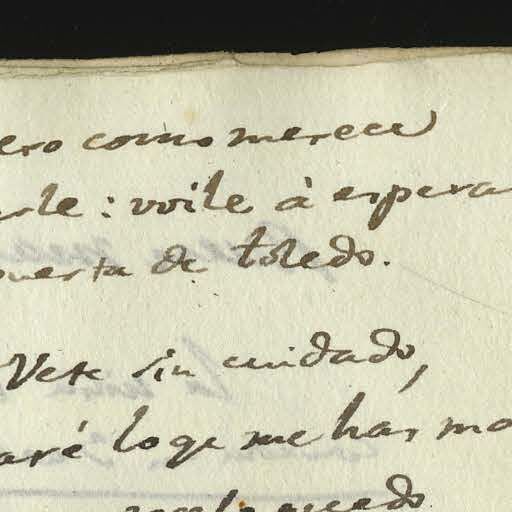 ero como merece
erle: voile à espera
puerta de toledo.
Vete sin cuidado,
aré lo qe me has ma
quedo